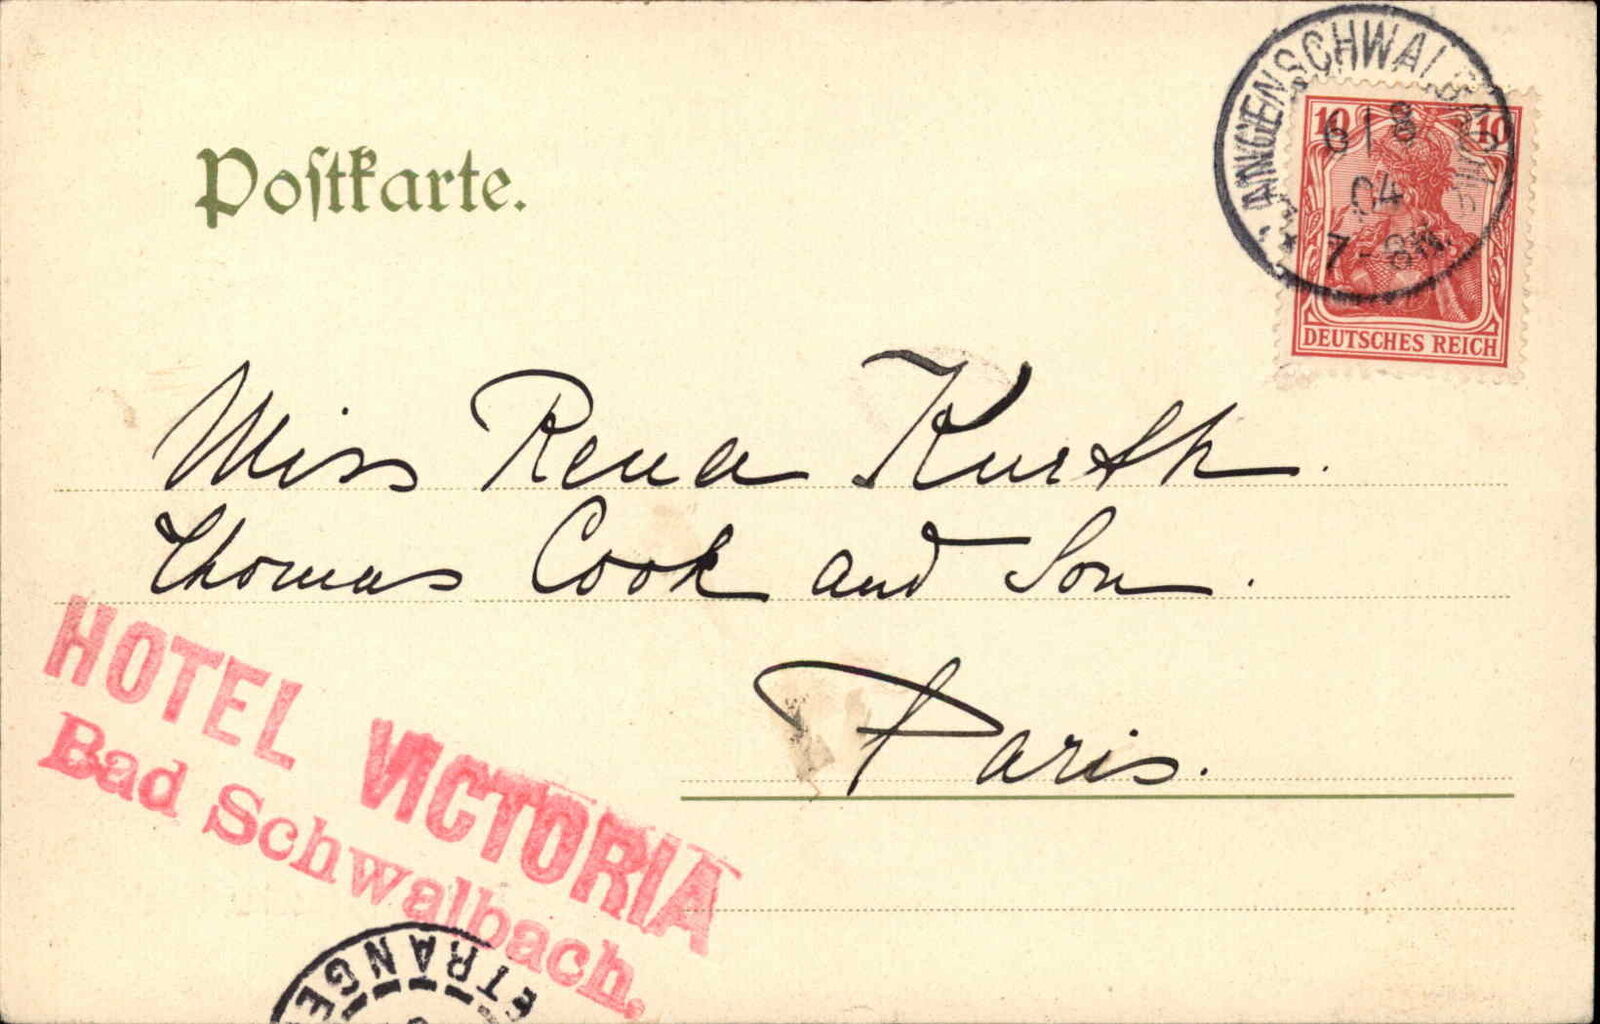 Postkarte.
LANGENSCHWALBACH
6/8
04
7-8N.
10 10
DEUTSCHES REICH
Miss Rena Kurth.
Thomas Cook and Son.
Paris.
HOTEL VICTORIA
Bad Schwalbach.
ETRANGE